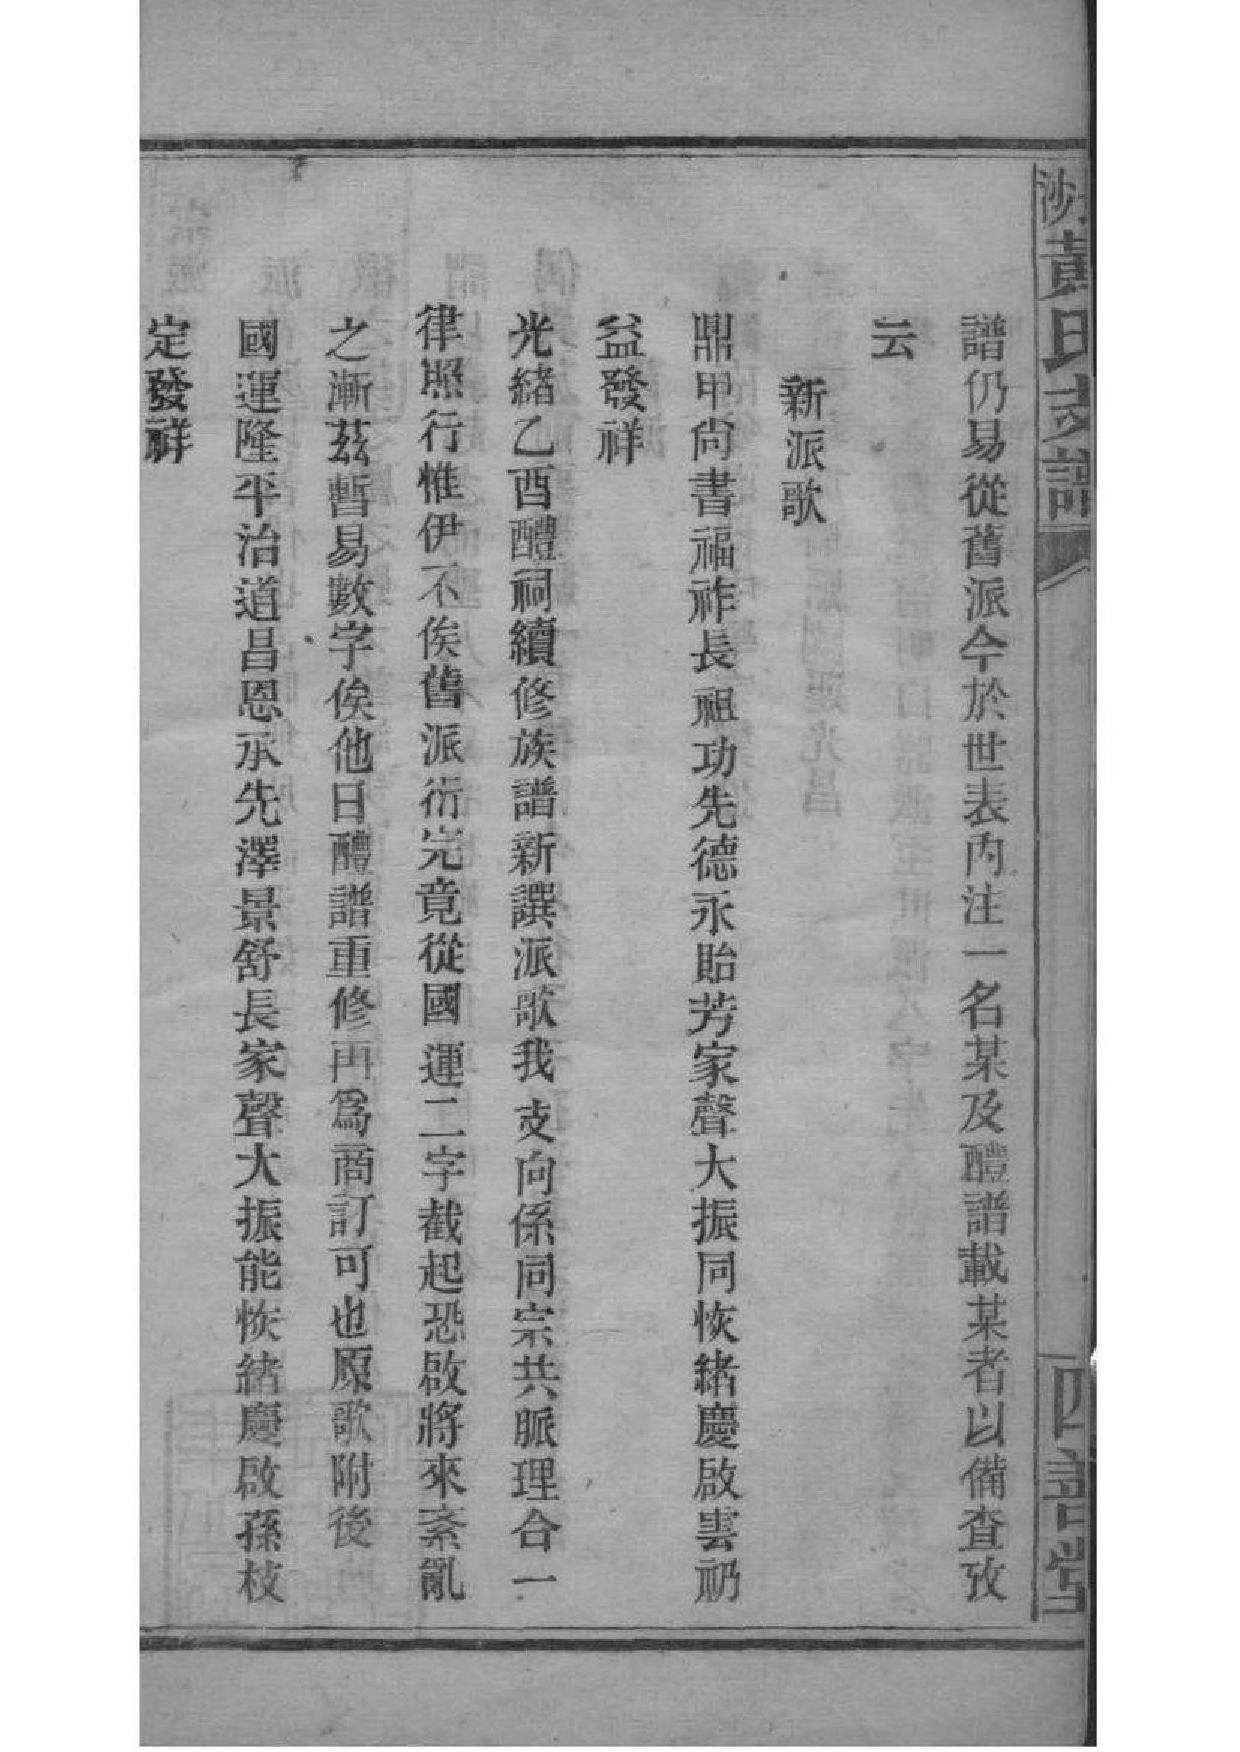 黃氏支譜
四善堂
譜仍易從舊派今於世表內注一名某及醴譜載某者以備查攷
云
新派歌
鼎甲尙書福祚長祖功先德永貽芳家聲大振同恢緒慶啟雲礽
益發祥
光緒乙酉醴祠續修族譜新譔派歌我支向係同宗共脈理合一
律照行惟伊不俟舊派衍完竟從國運二字截起恐啟將來紊亂
之漸茲暫易數字俟他日醴譜重修再爲商訂可也原歌附後
國運隆平治道昌恩承先澤景舒長家聲大振能恢緒慶啟孫枝
定發祥